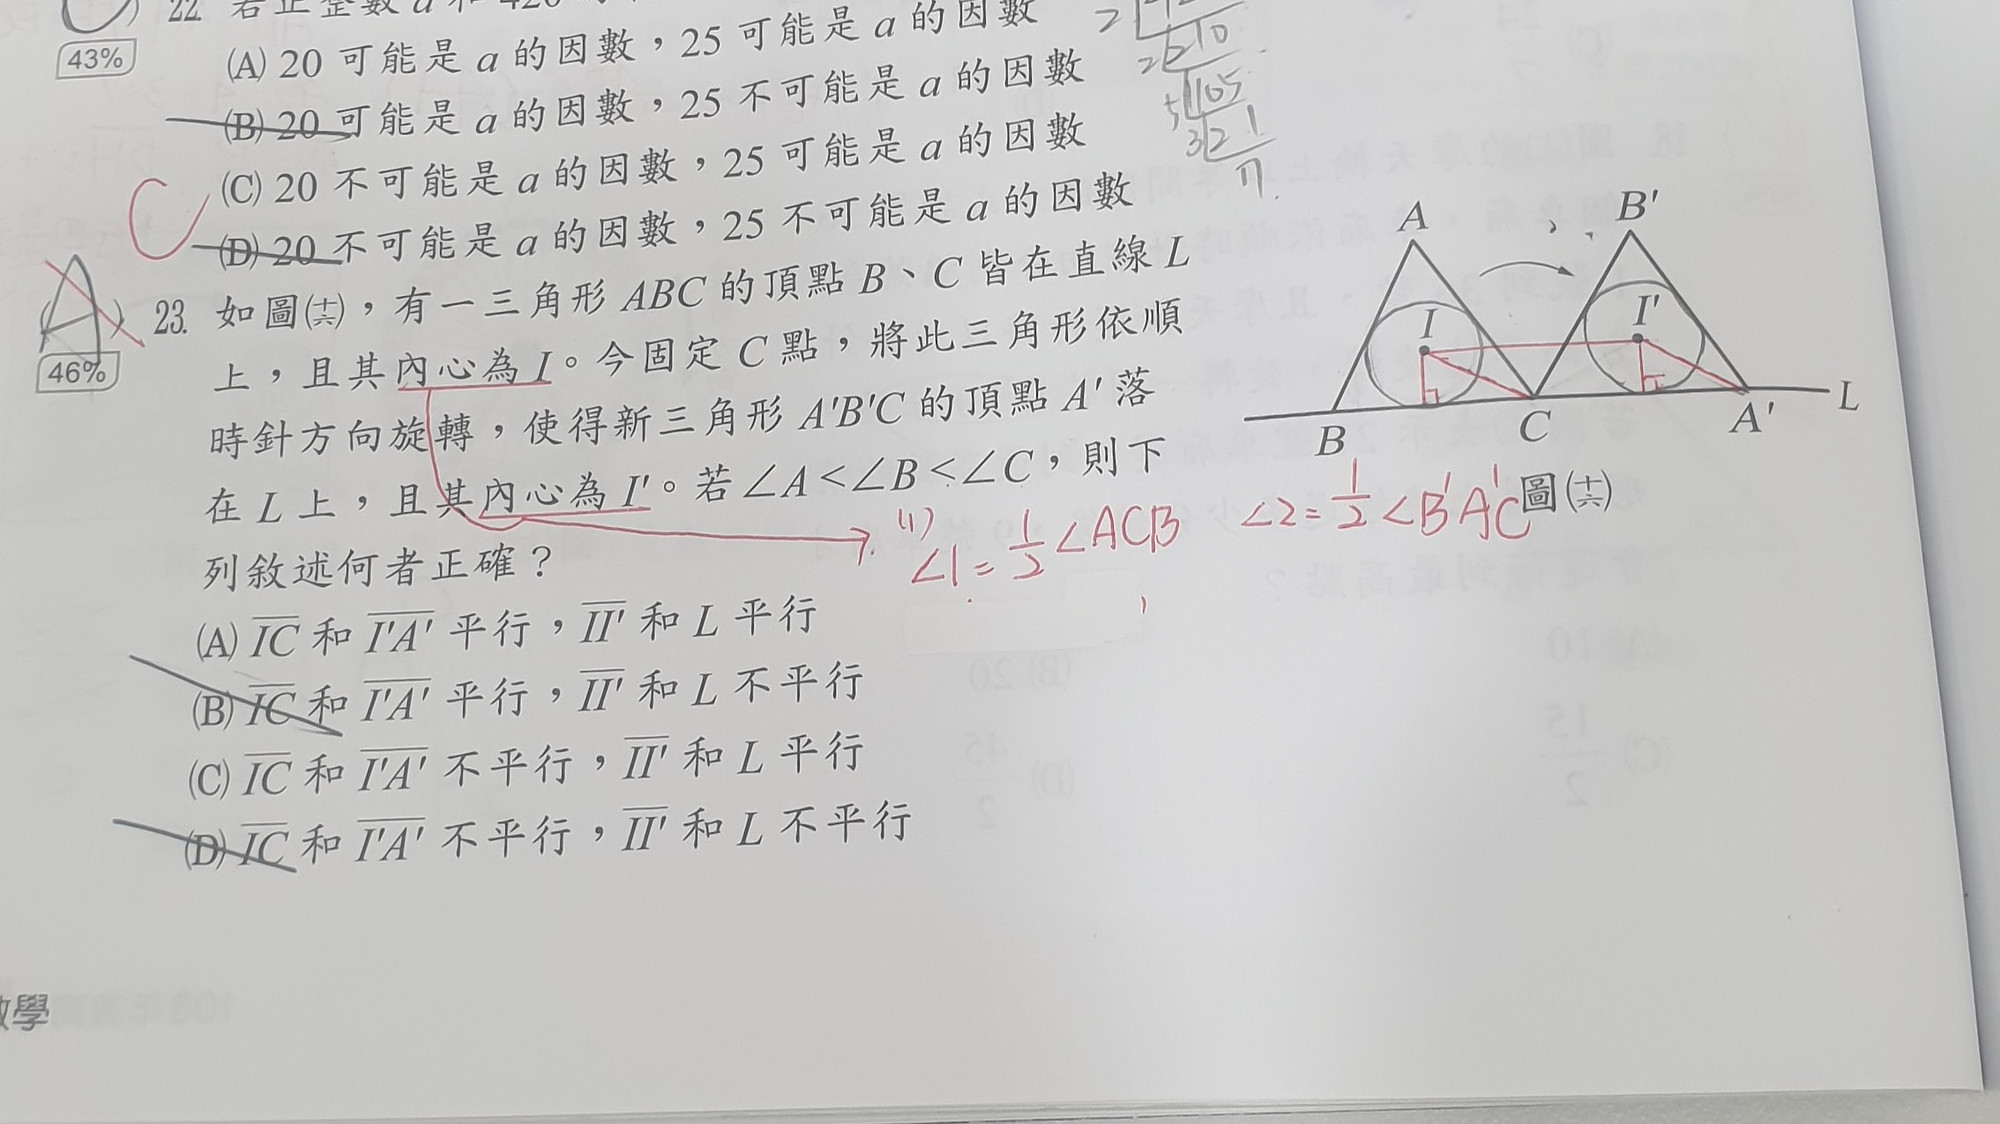 22. 若正整數 a 和 420
43%
(A) 20 可能是 a 的因數，25 可能是 a 的因數
(B) 20 可能是 a 的因數，25 不可能是 a 的因數
(C) 20 不可能是 a 的因數，25 可能是 a 的因數
(D) 20 不可能是 a 的因數，25 不可能是 a 的因數
C
2 210
5 105
3 21
7
A
46%
23. 如圖(十六)，有一三角形 ABC 的頂點 B、C 皆在直線 L
上，且其內心為 I。今固定 C 點，將此三角形依順
時針方向旋轉，使得新三角形 A'B'C 的頂點 A' 落
在 L 上，且其內心為 I'。若∠A<∠B<∠C，則下
列敘述何者正確？
(1)
∠1=1/2∠ACB ∠2=1/2∠B'A'C
(A) IC 和 I'A' 平行，II' 和 L 平行
(B) IC 和 I'A' 平行，II' 和 L 不平行
(C) IC 和 I'A' 不平行，II' 和 L 平行
(D) IC 和 I'A' 不平行，II' 和 L 不平行
A B'
I I'
B C A' L
圖(十六)
數學